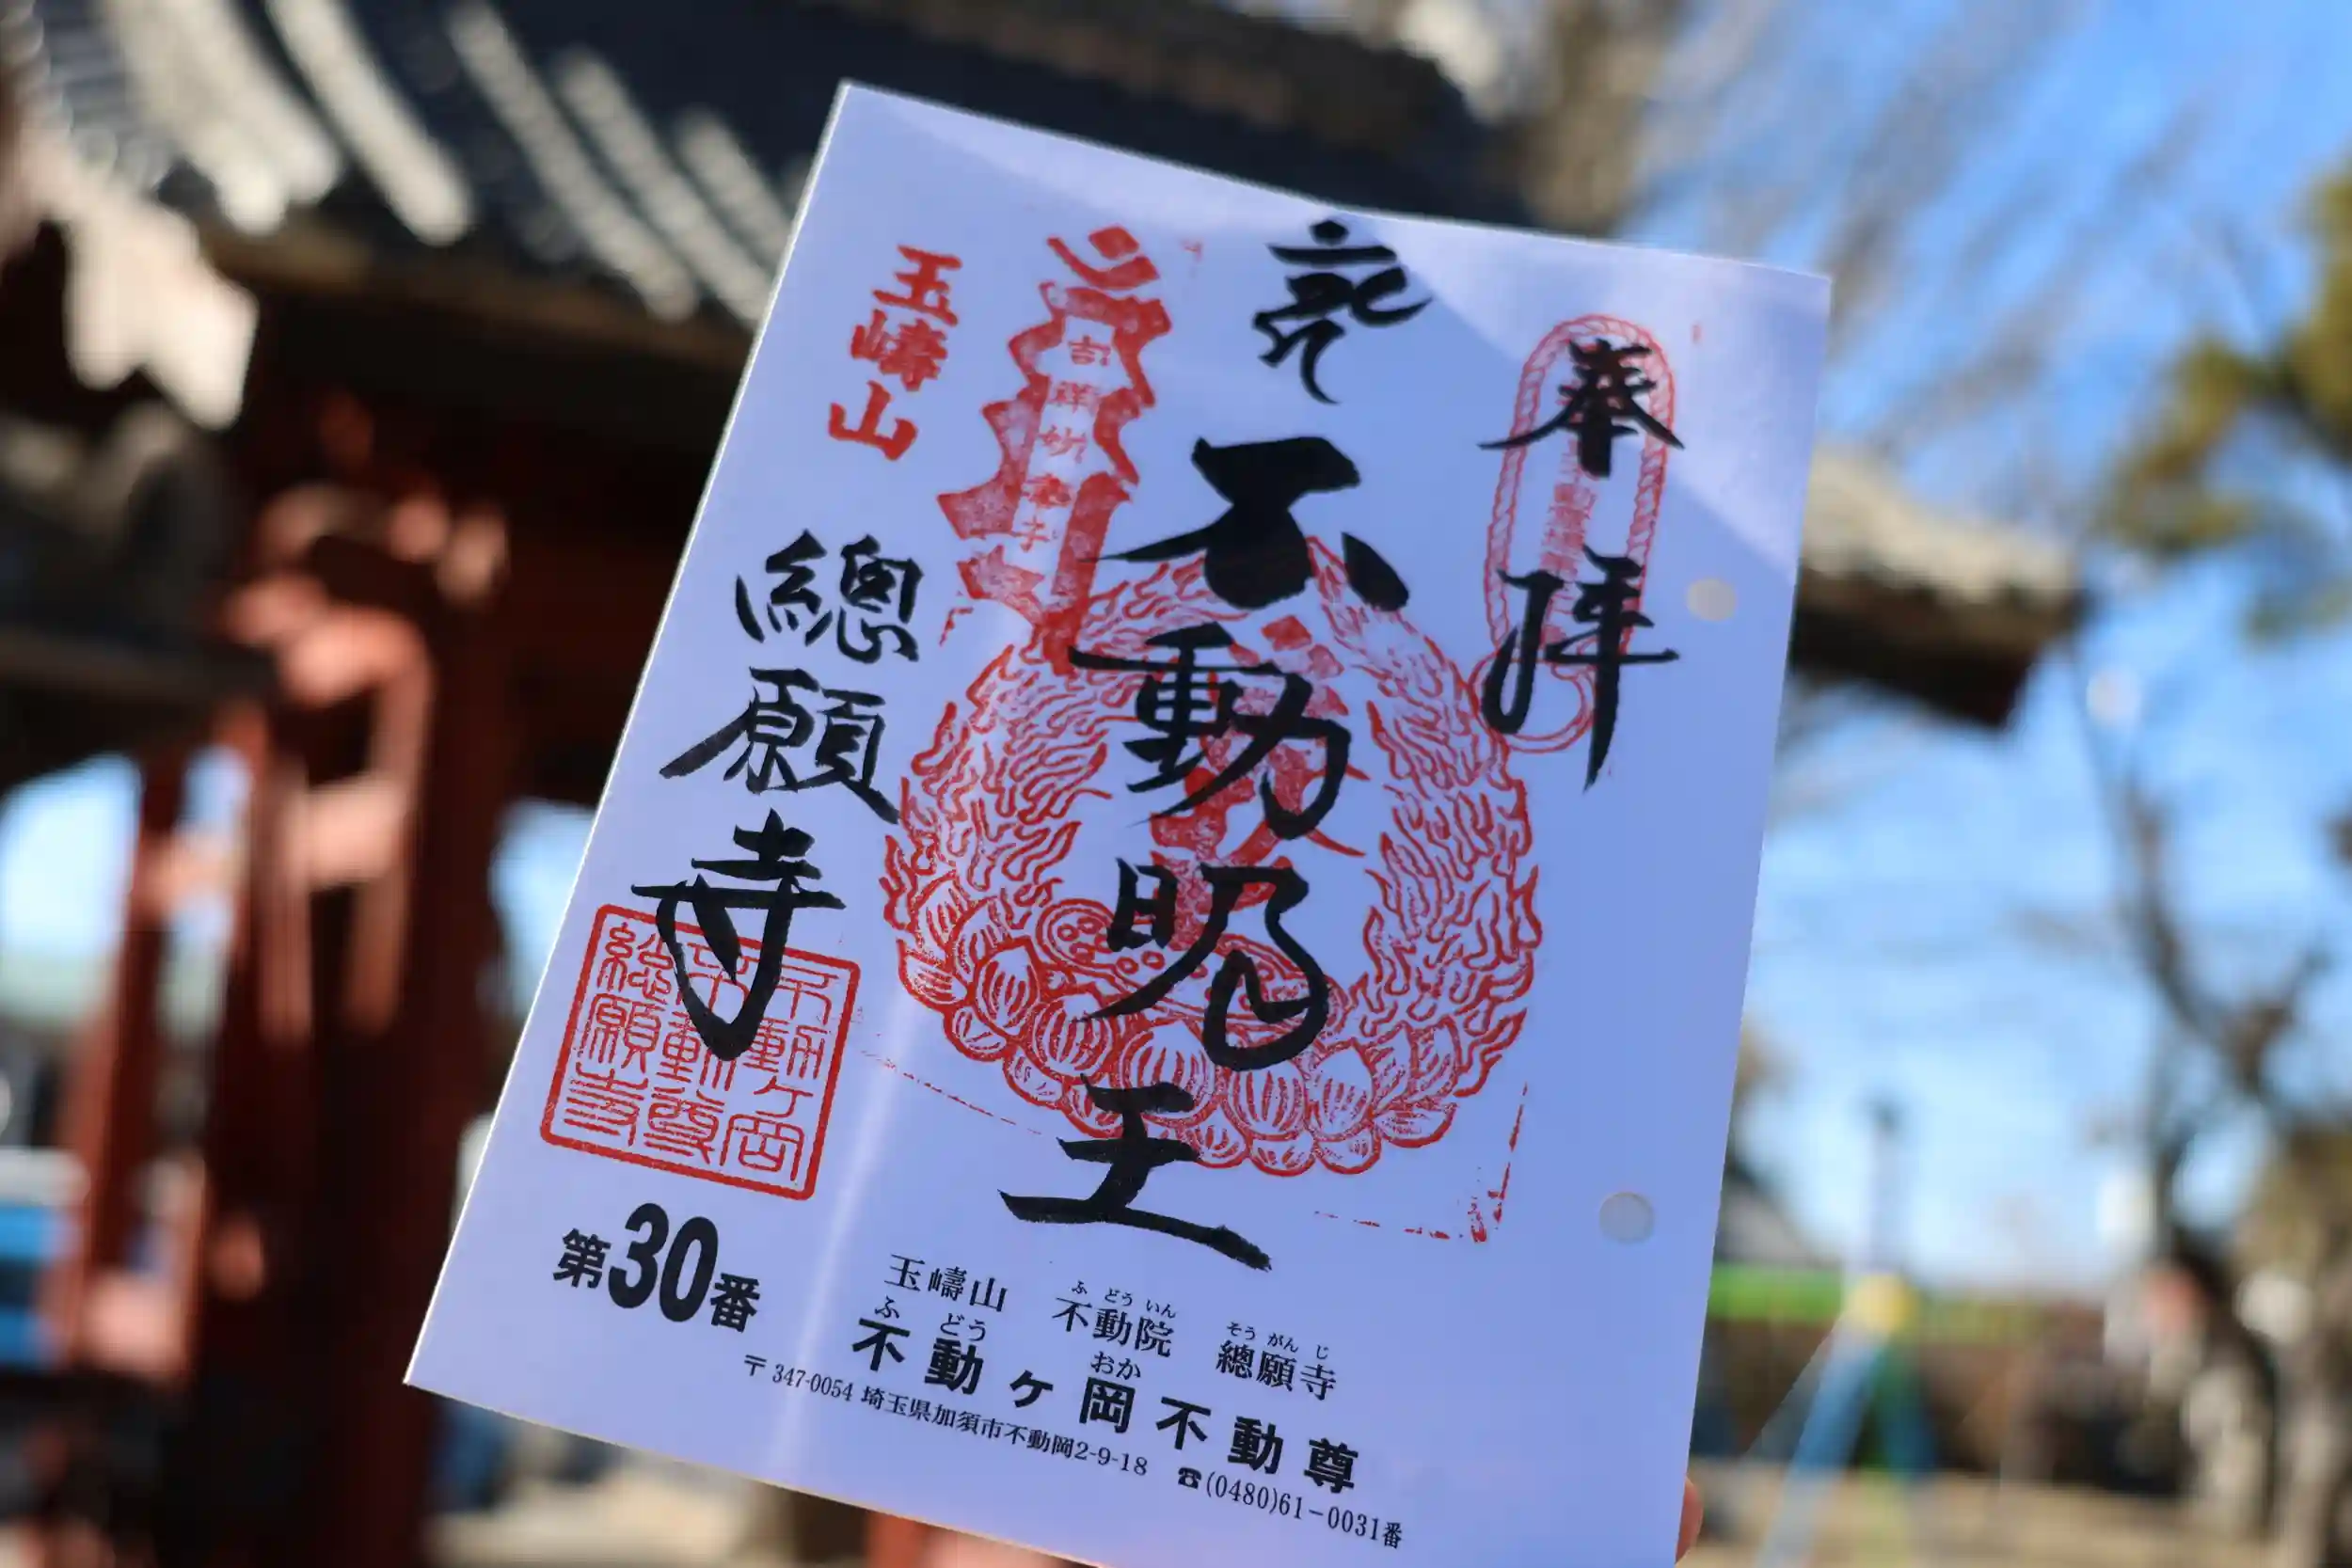 奉拝
不動明王
吉祥妙童子
玉嶹山
總願寺
不動ヶ岡
不動尊
總願寺
第30番
玉嶹山 不動院 總願寺
ふどういん そうがんじ
不動ヶ岡不動尊
ふどう おか
〒347-0054 埼玉県加須市不動岡2-9-18 ☎(0480)61-0031番